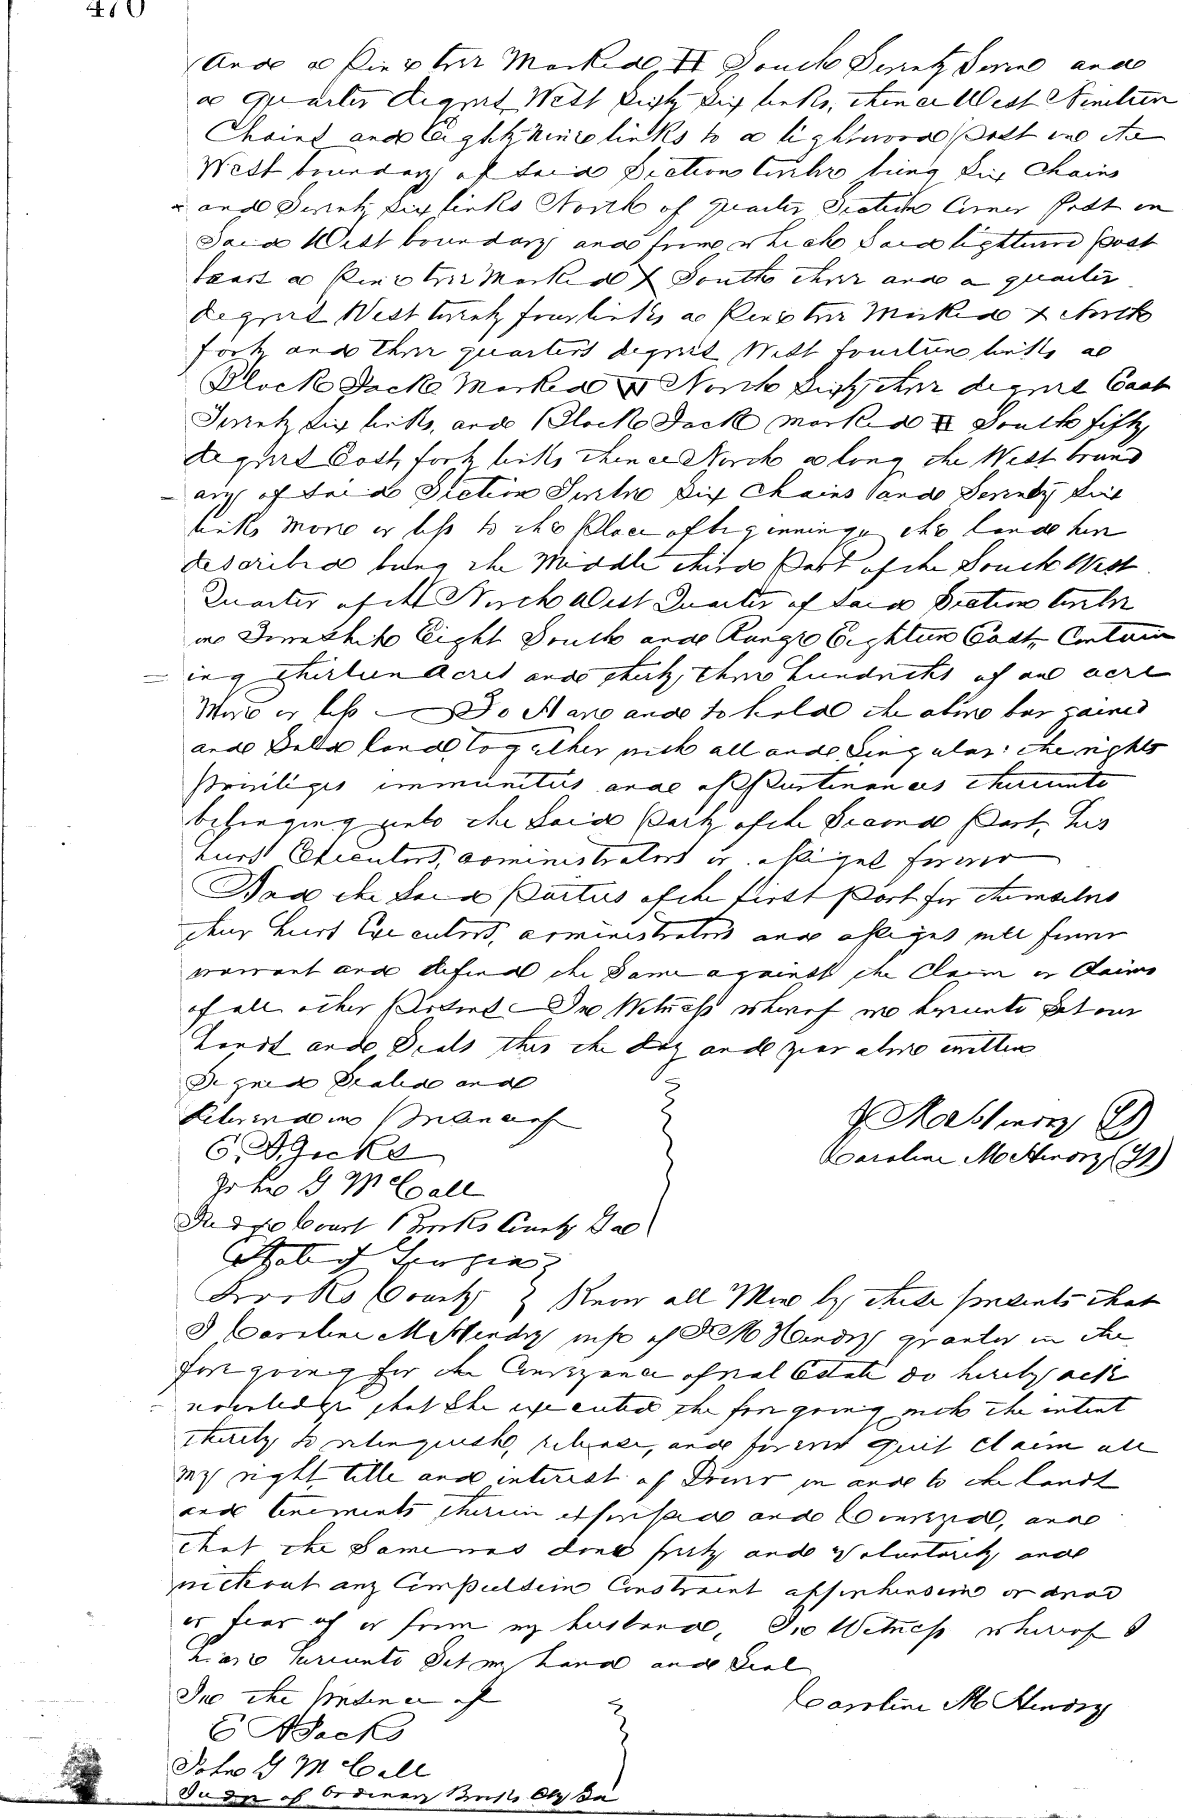 470
And a Pine tree Marked II South Seventy Seven and
a quarter degrees West Sixty Six links, thence West Nineteen
Chains and Eighty Nine links to a lightwood post on the
West boundary of Said Section twelve being Six Chains
and Seventy Six links North of quarter Section Corner Post on
Said West boundary and from which Said lightwood post
bears a Pine tree Marked X South three and a quarter
degrees West twenty four links a Pine tree Marked X North
forty and three quarters degrees West fourteen links a
Black Jack Marked North Sixty three degrees East
Seventy Six links, and Black Jack marked II South fifty
degrees East forty links thence North along the West bound
ary of Said Section Twelve Six Chains and Seventy Six
links more or less to the Place of beginning the land here
described being the Middle third Part of the South West
Quarter of the North West Quarter of Said Section twelve
in Township Eight South and Range Eighteen East, Contain
ing thirteen Acres and thirty three hundreths of an acre
More or less To Have and to hold the above bargained
and Sold land, together with all and Singular the rights
Priviliges immunities and appurtinances thereunto
belonging unto the Said Party of the Second Part, his
heirs Executors, administrators or assigns forever
And the Said Parties of the first Part for themselves
their heirs Executors, administrators and assigns will forever
warrant and defend the Same against the Claim or Claims
of all other Persons In Witness whereof we hereunto Set our
hands and Seals this the day and year above written
Signed Sealed and
Delivered in Presence of
J McHendry (LS)
Caroline McHendry (LS)
John G McCall
Judge Court Brooks County Ga
State of Georgia
Brooks County } Know all Men by these presents that
I Caroline McHendry wife of McHendry grantor in the
fore going for the Conveyance of real Estate do hereby ack
nowledge that She executed the fore going with the intent
thereby to relinquish, release, and forever quit claim all
my right title and interest of Dower in and to the lands
and tenements therein expressed and Conveyed, and
that the Same was done freely and Voluntarily and
without any Compulsion Constraint apprehension or dread
or fear of or from my husband, In Witness whereof I
have hereunto Set my hand and Seal
In the presence of
Caroline McHendry
John G McCall
Judge of Ordinary Brooks Cty Ga